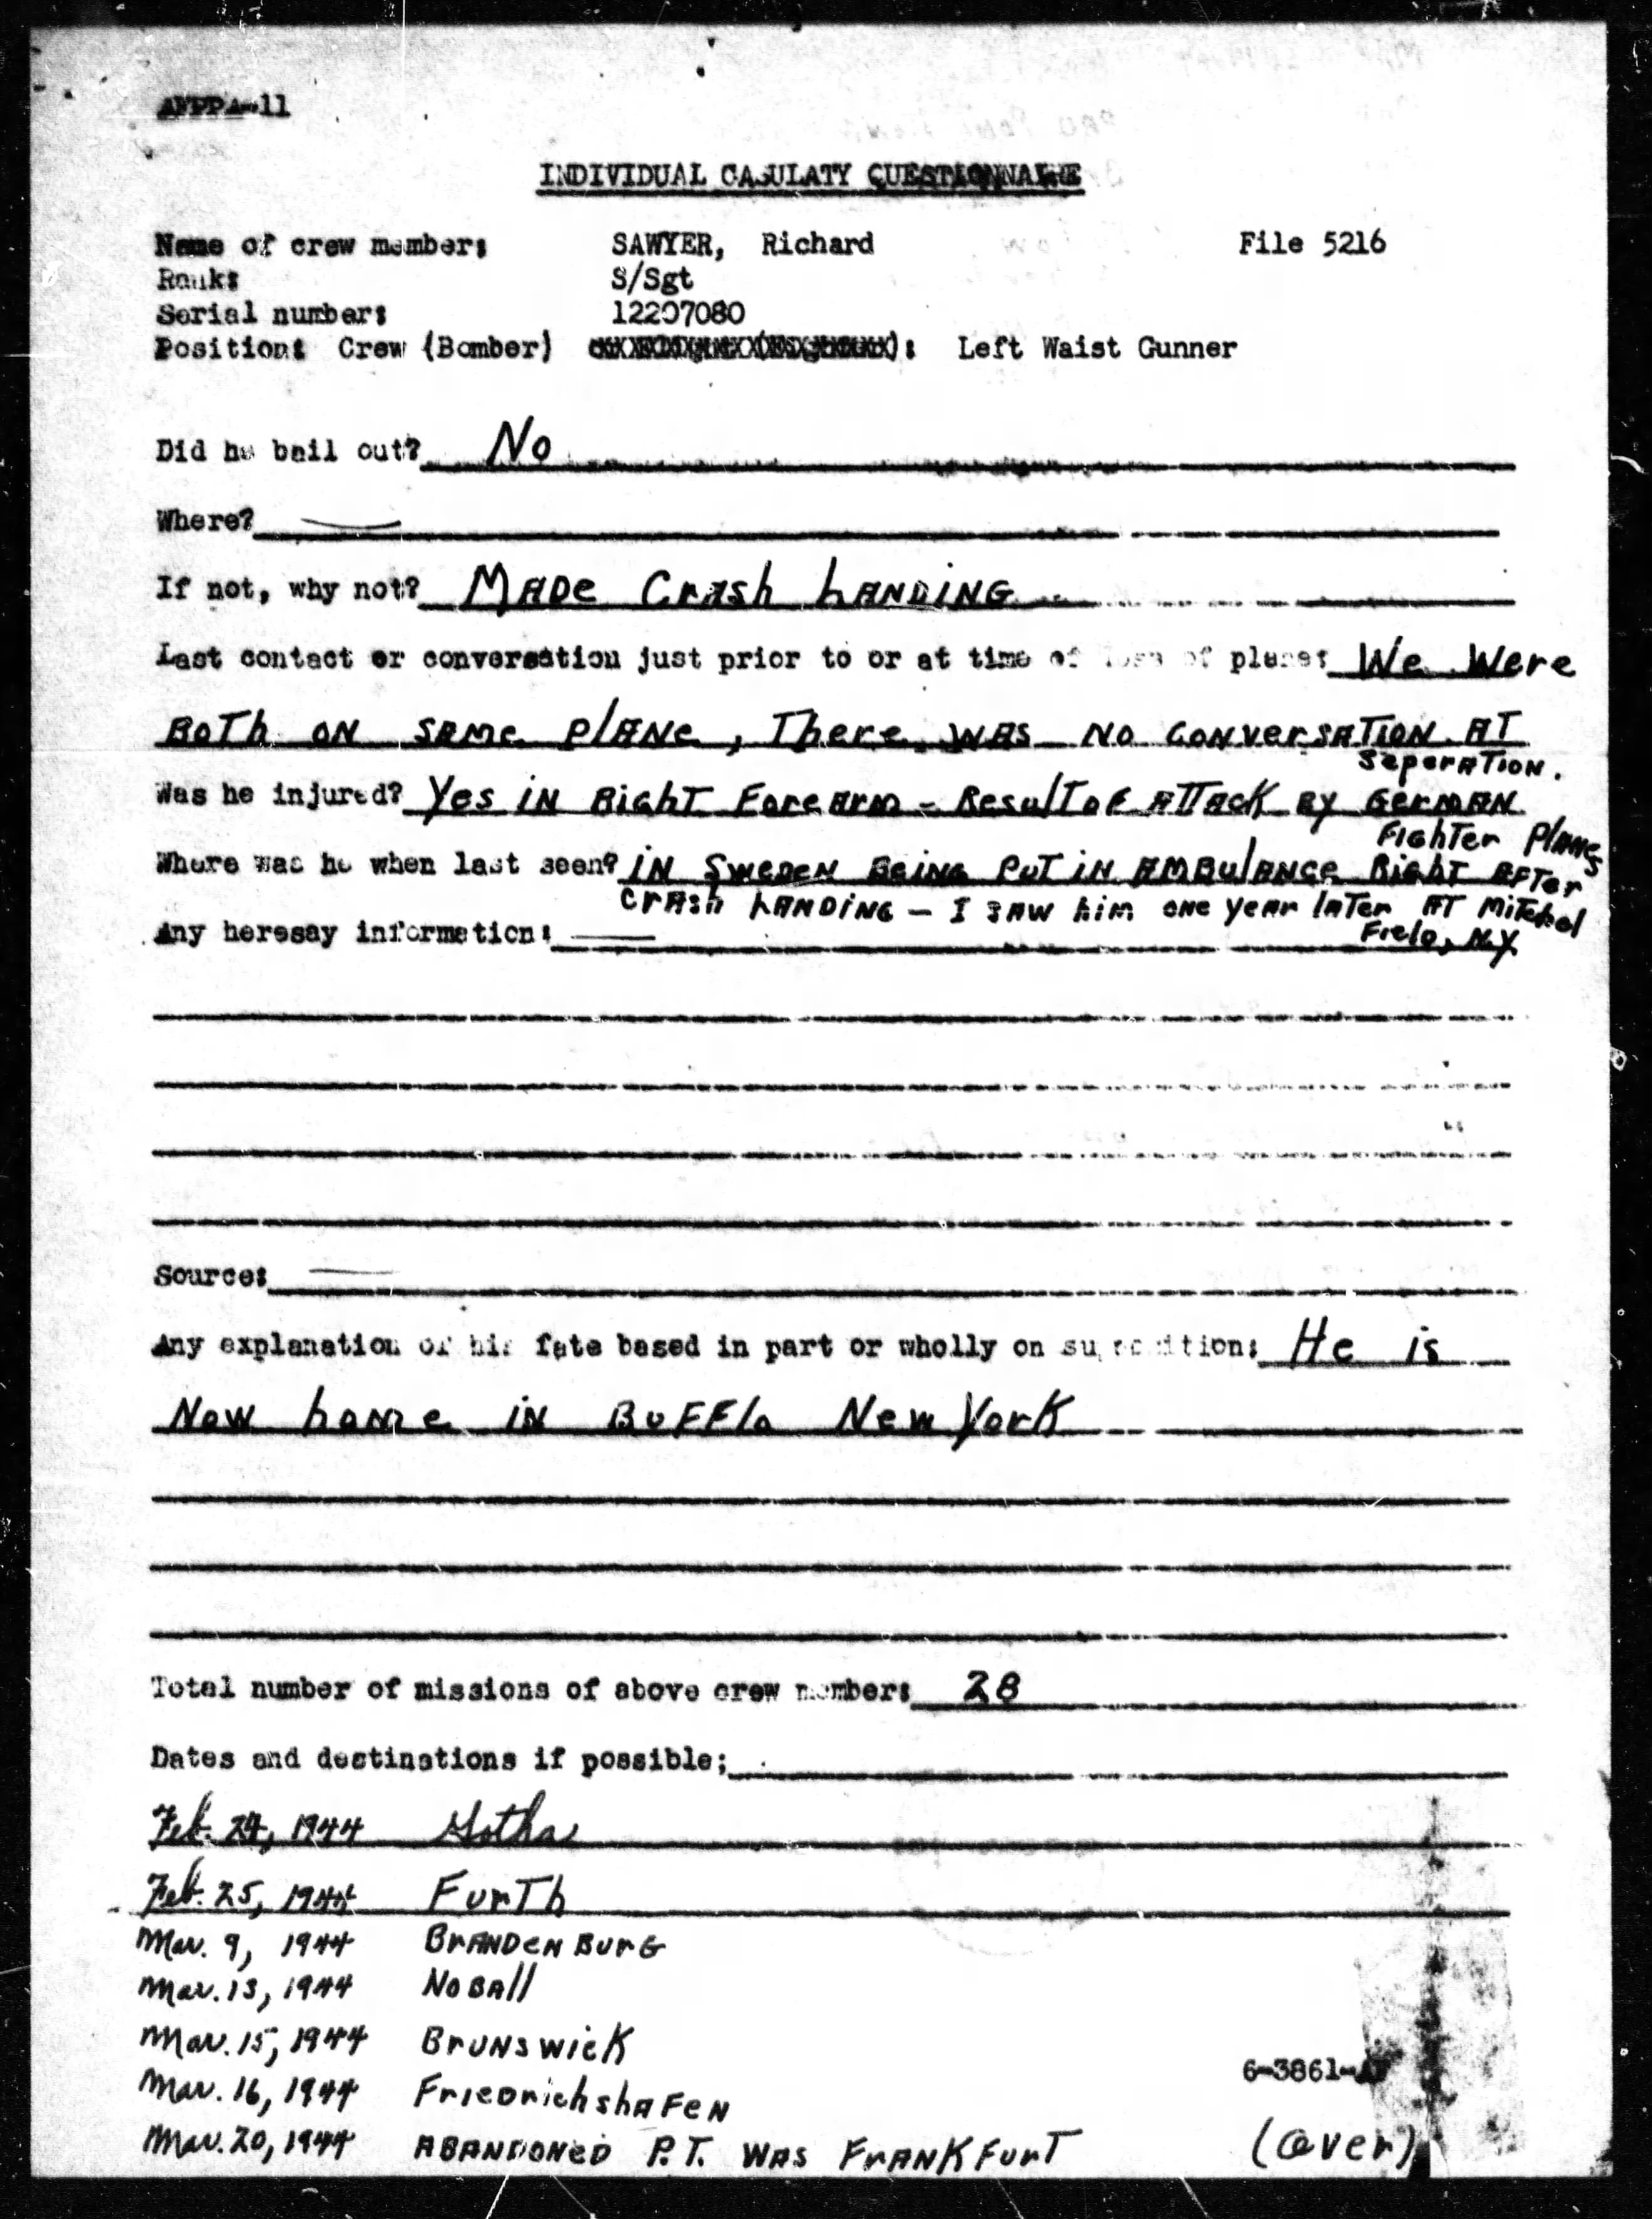 AFPPA-11
INDIVIDUAL CASULATY QUESTIONNAIRE
Name of crew member: SAWYER, Richard File 5216
Rank: S/Sgt
Serial number: 12207080
Position: Crew (Bomber) : Left Waist Gunner
Did he bail out? No
Where? —
If not, why not? MADe CrAsh LANDiNG
Last contact or conversation just prior to or at time of loss of plane: We Were
BoTh oN SAMe PlANe, There wAs No CoNverSATioN AT
SeperATioN.
Was he injured? Yes iN RighT ForeArm - ResulT oF ATTAcK By GermAN
FighTer PlANes
Where was he when last seen? iN SweDeN BeiNG PuT iN AMBulANce RighT AFTer
CrASh LANDiNG - I SAW him oNe yeAr lATer AT MiTchel
Any heresay information: — FielD, N.Y.
Source: —
Any explanation of his fate based in part or wholly on supposition: He is
Now home iN BuFFlo New York
Total number of missions of above crew member: 28
Dates and destinations if possible;
Feb. 24, 1944 Gotha
Feb. 25, 1944 FurTh
Mar. 9, 1944 BrANDeNBurG
Mar. 13, 1944 NoBAll
Mar. 15, 1944 BruNswicK
Mar. 16, 1944 FrieDrichshAFeN
Mar. 20, 1944 ABANDoNeD P.T. WAS FrANKFurT
6-3861-AF
(over)